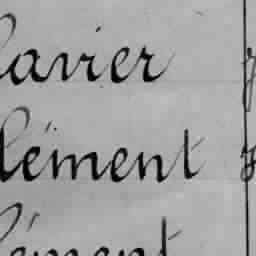 lavier
lément
lément